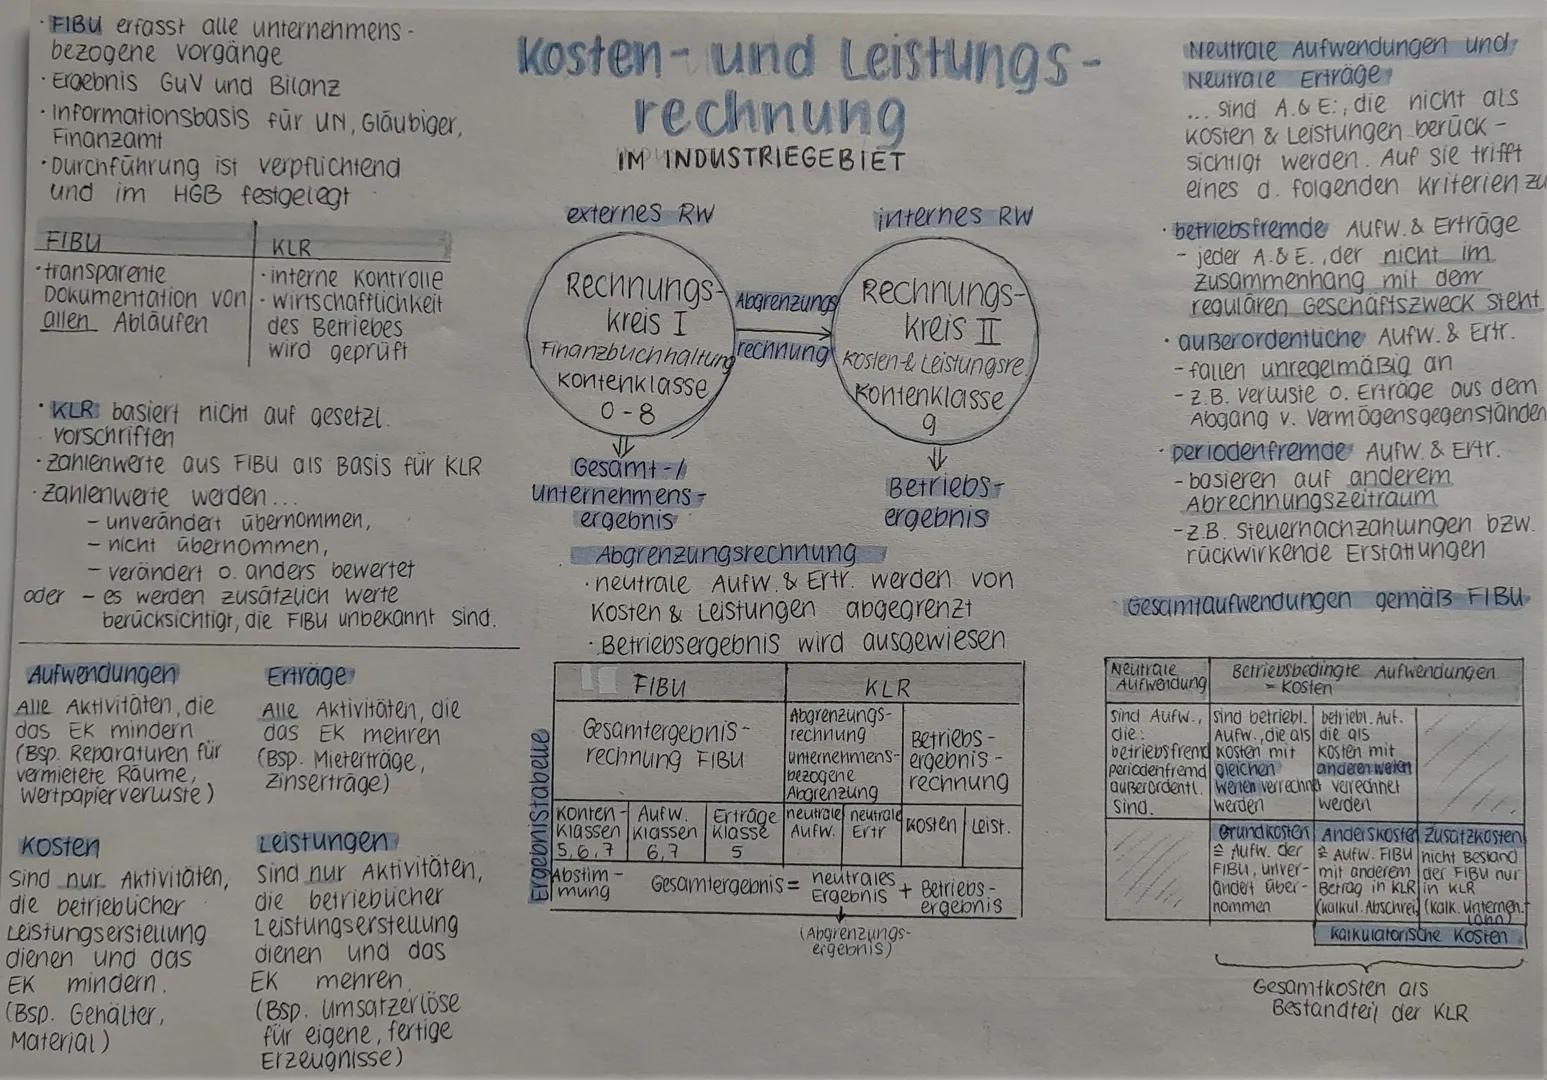 · FIBU erfasst alle unternehmens-
bezogene Vorgänge
· Ergebnis GuV und Bilanz
· Informationsbasis für UN, Gläubiger,
Finanzamt
· Durchführung ist verpflichtend
und im HGB festgelegt
FIBU
KLR
· transparente
Dokumentation von
allen Abläufen
· interne Kontrolle
· Wirtschaftlichkeit
des Betriebes
wird geprüft
· KLR basiert nicht auf gesetzl.
Vorschriften
· Zahlenwerte aus FIBU als Basis für KLR
· Zahlenwerte werden ...
- unverändert übernommen,
- nicht übernommen,
- verändert o. anders bewertet
oder - es werden zusätzlich Werte
berücksichtigt, die FIBU unbekannt sind.
Aufwendungen
Alle Aktivitäten, die
das EK mindern
(Bsp. Reparaturen für
vermietete Räume,
Wertpapierverluste)
Erträge
Alle Aktivitäten, die
das EK mehren
(Bsp. Mieterträge,
Zinserträge)
Kosten
Sind nur Aktivitäten,
die betrieblicher
Leistungserstellung
dienen und das
EK mindern.
(Bsp. Gehälter,
Material)
Leistungen
Sind nur Aktivitäten,
die betrieblicher
Leistungserstellung
dienen und das
EK mehren.
(Bsp. Umsatzerlöse
für eigene, fertige
Erzeugnisse)
Kosten- und Leistungs-
rechnung
IM INDUSTRIEGEBIET
externes RW
internes RW
Rechnungs-
kreis I
Finanzbuchhaltung
Kontenklasse
0-8
Abgrenzungs
rechnung
Rechnungs-
kreis II
Kosten- & Leistungsre
Kontenklasse
9
Gesamt-/
Unternehmens-
ergebnis
Betriebs-
ergebnis
Abgrenzungsrechnung
· neutrale Aufw. & Ertr. werden von
Kosten & Leistungen abgegrenzt
· Betriebsergebnis wird ausgewiesen
Ergebnistabelle
FIBU
KLR
Gesamtergebnis-
rechnung FIBU
Abgrenzungs-
rechnung
unternehmens-
bezogene
Abgrenzung
Betriebs-
ergebnis-
rechnung
Konten-
klassen
5,6,7
Aufw.
klassen
6,7
Erträge
Klasse
5
neutrale
Aufw.
neutrale
Ertr
Kosten
Leist.
Abstim-
mung
Gesamtergebnis = neutrales Ergebnis + Betriebs-
ergebnis
(Abgrenzungs-
ergebnis)
Neutrale Aufwendungen und
Neutrale Erträge
... sind A. & E., die nicht als
Kosten & Leistungen berück-
sichtigt werden. Auf sie trifft
eines d. folgenden Kriterien zu
· betriebsfremde Aufw. & Erträge
- jeder A. & E., der nicht im
Zusammenhang mit dem
regulären Geschäftszweck steht
· außerordentliche Aufw. & Ertr.
- fallen unregelmäßig an
- z.B. Verluste o. Erträge aus dem
Abgang v. Vermögensgegenständen
· periodenfremde Aufw. & Ertr.
- basieren auf anderem
Abrechnungszeitraum
- z.B. Steuernachzahlungen bzw.
rückwirkende Erstattungen
Gesamtaufwendungen gemäß FIBU
Neutrale
Aufwendung
Betriebsbedingte Aufwendungen
= Kosten
sind Aufw.,
die:
betriebsfremd
periodenfremd
außerordentl.
sind.
sind betriebl.
Aufw., die als
Kosten mit
gleichen
Werten verrechnet
werden
betriebl. Auf.
die als
Kosten mit
anderen Werten
verrechnet
werden
Grundkosten
≙ Aufw. der
FIBU, unver-
ändert über-
nommen
Anderskosten
≠ Aufw. FIBU
mit anderem
Betrag in KLR
(kalkul. Abschrei.
Zusatzkosten
nicht Bestand
der FIBU nur
in KLR
(kalk. Unterneh.
lohn)
kalkulatorische Kosten
Gesamtkosten als
Bestandteil der KLR